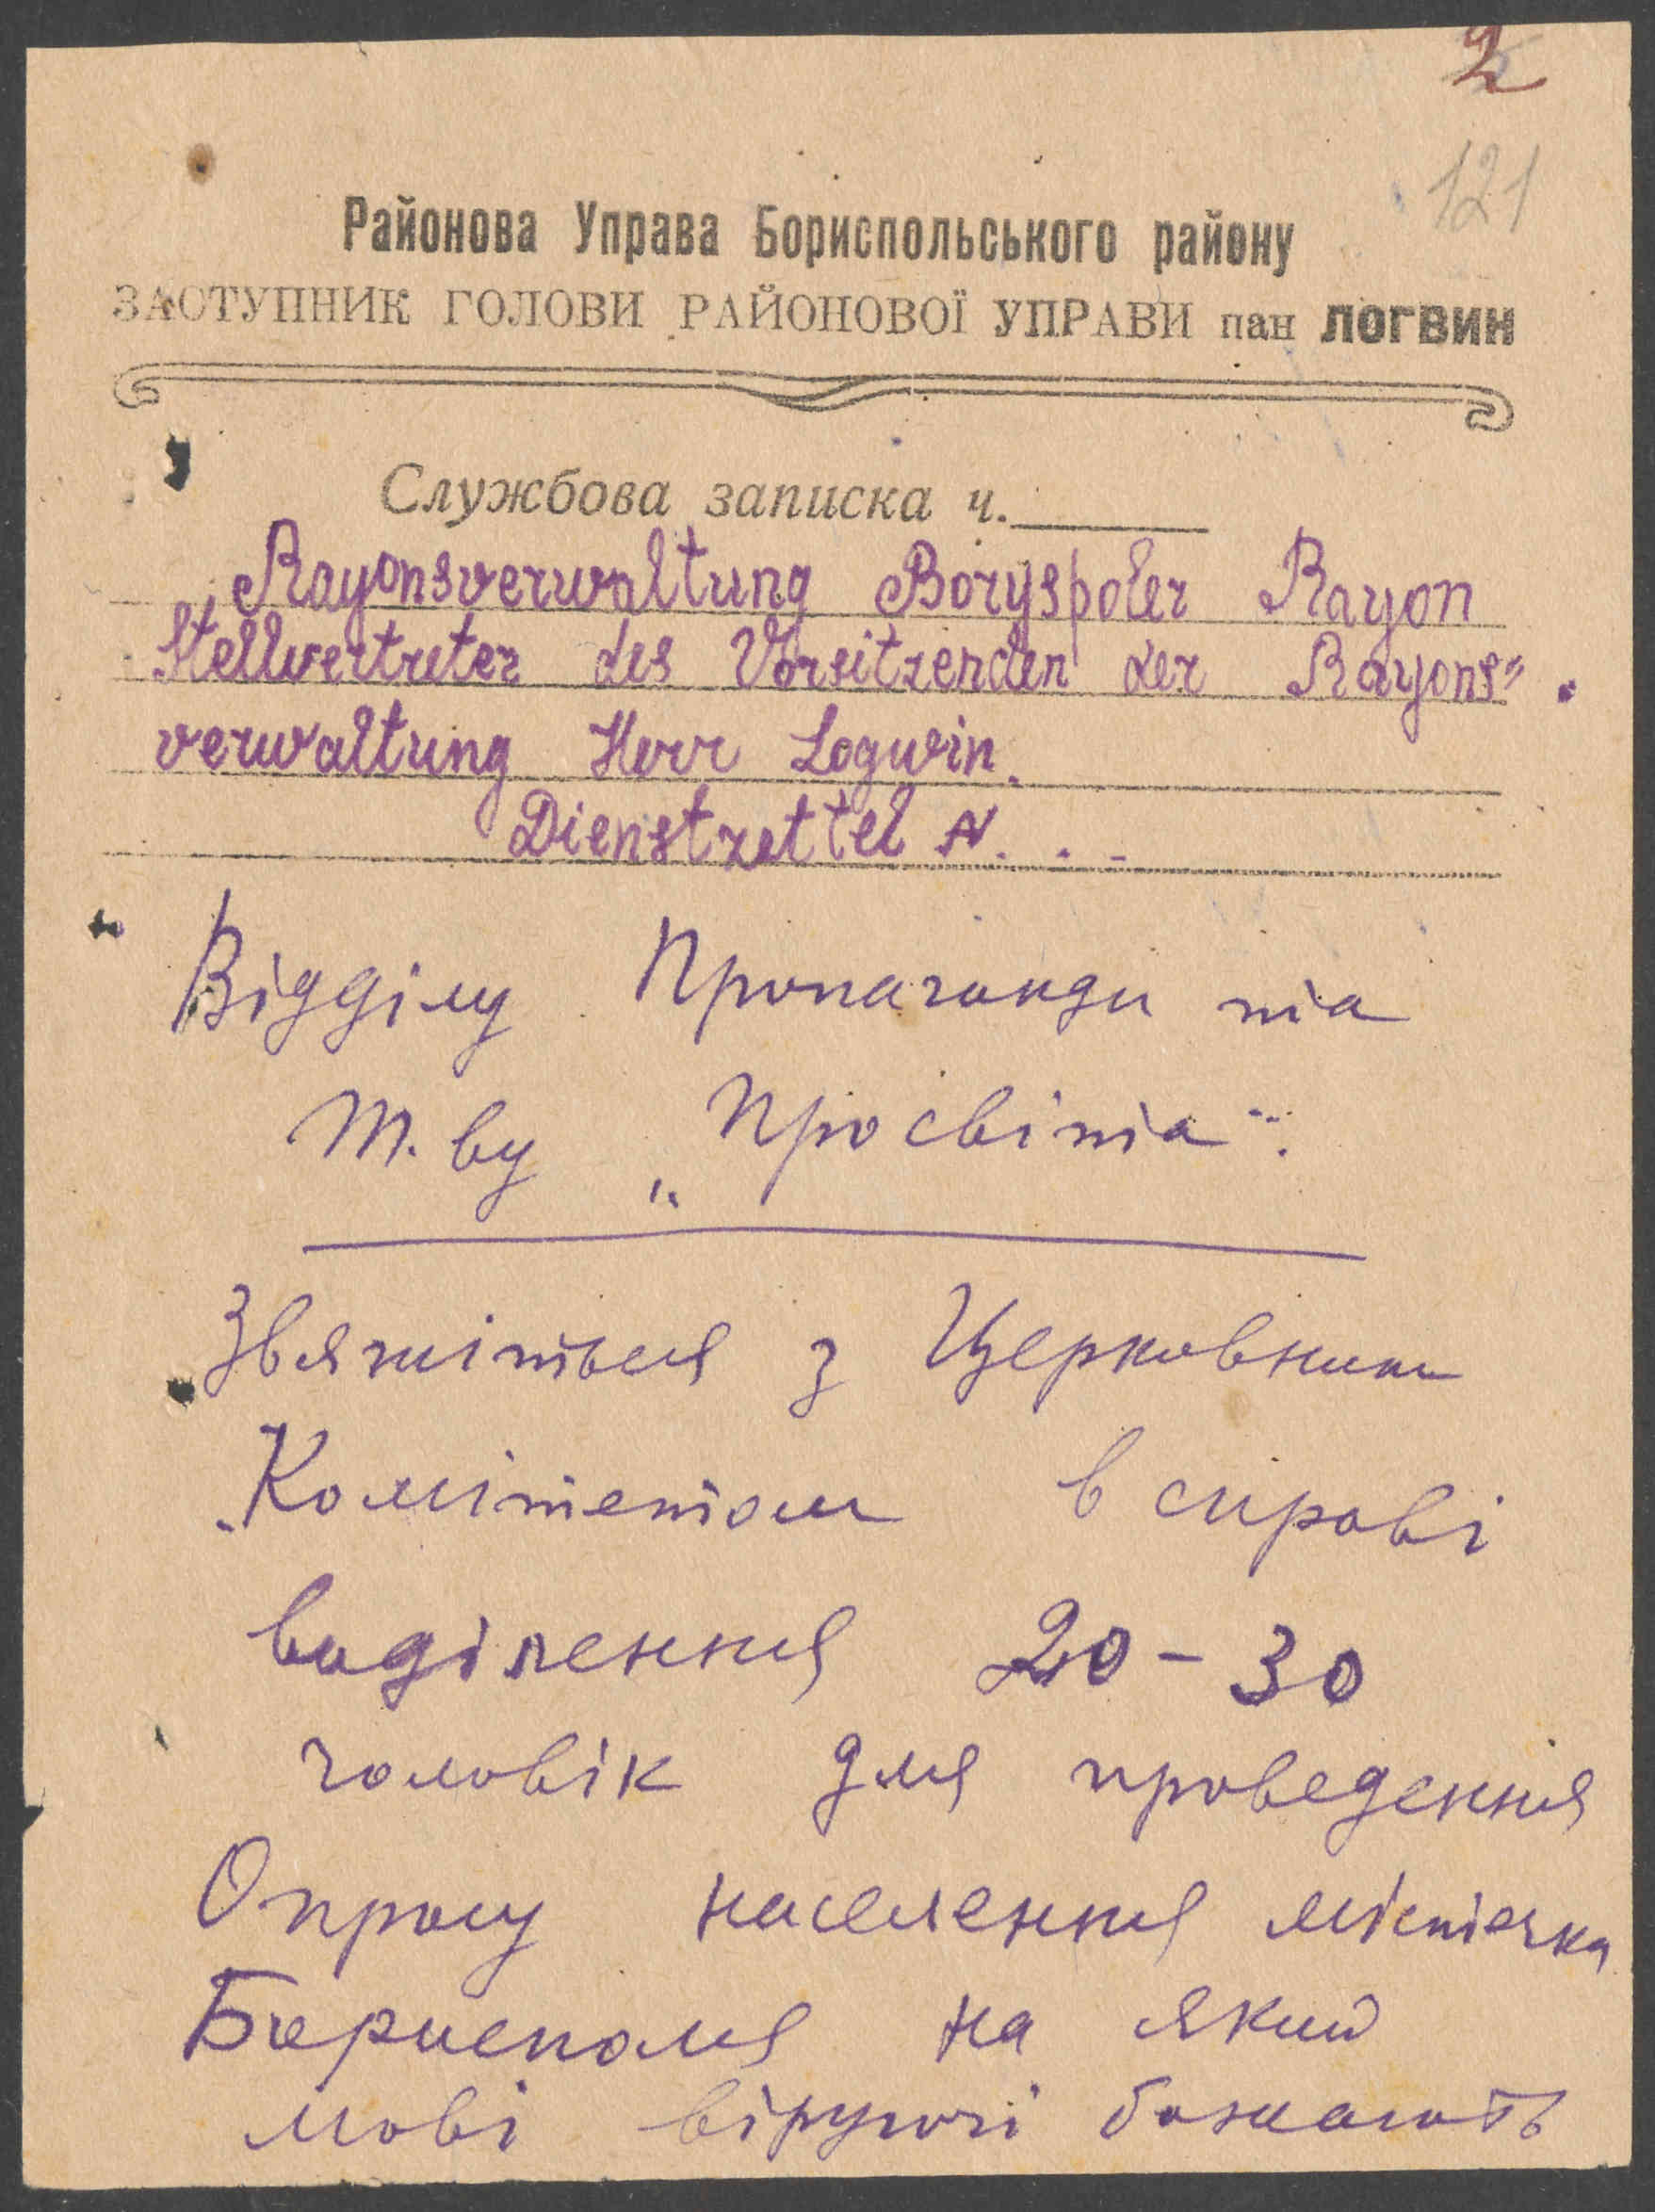 2
121
Районова Управа Бориспольського району
ЗАСТУПНИК ГОЛОВИ РАЙОНОВОЇ УПРАВИ пан ЛОГВИН
Службова записка ч.
Rayonsverwaltung Boryspoler Rayon
Stellvertreter des Vorsitzenden der Rayons"
verwaltung Herr Logwin.
Dienstzettel N. . .
Відділу Пропаганди та
т. ву „Просвіта".
Звяжіться з Церковним
Комітетом в справі
виділення 20-30
чоловік для проведення
Опросу населення містечка
Борисполя на який
мові віруючі бажають